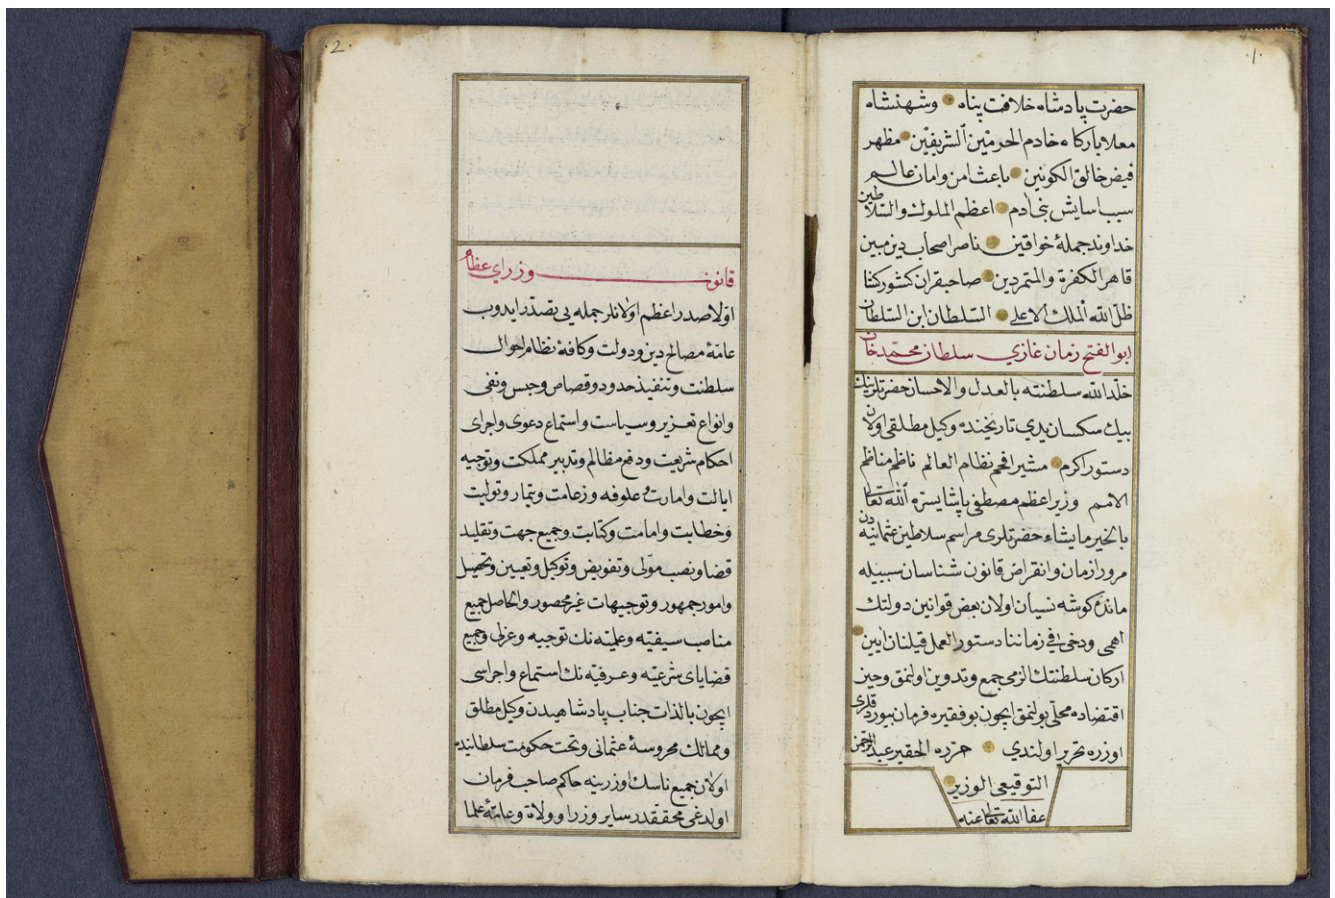 ١
حضرت پادشاه خلافت پناه وشهنشاه
معلا باركاه خادم الحرمين الشريفين مظهر
فيض خالق الكونين باعث امن وامان عالم
سبب اسايش بنى ادم اعظم الملوك والسلاطين
خداوند جملهٔ خواقين ناصر اصحاب دين مبين
قاهر الكفرة والمتمردين صاحبقران كشوركشا
ظلّ الله الملك الاعلى السلطان ابن السلطان
ابو الفتح زمان غازي سلطان محمّد خان
خلّد الله سلطنته بالعدل والاحسان حضرتلرينك
بيك سكسان يدي تاريخنده وكيل مطلقى اولان
دستور اكرم مشير افخم نظام العالم ناظم مناظم
الامم وزير اعظم مصطفى پاشا يسره الله تعالى
بالخير ما يشاء حضرتلرى مراسم سلاطين عثمانيه دن
مرور ازمان وانقراض قانون شناسان سببيله
ماندهٔ كوشه نسيان اولان بعض قوانين دولتك
اهمى ودخى فى زماننا دستور العمل قيلنان ايين
اركان سلطنتك الزمى جمع وتدوين اولنمق وحين
اقتضاده محلّى بولنمق ايچون بو فقيره فرمان بيوردقلرى
اوزره تحرير اولندي حرره الحقير عبد الرحمن
التوقيعى الوزير
عفا الله تعالى عنه
٢
قانون وزراي عظام
اوّلا صدر اعظم اولانلر جمله يى تصدّر ايدوب
عامّهٔ مصالح دين ودولت وكافهٔ نظام احوال
سلطنت وتنفيذ حدود وقصاص وحبس ونفى
وانواع تعزير وسياست واستماع دعوى واجراى
احكام شريعت ودفع مظالم وتدبير مملكت وتوجيه
ايالت وامارت وعلوفه وزعامت وتيمار وتوليت
وخطابت وامامت وكتابت وجميع جهت وتقليد
قضا ونصب مولى وتفويض وتوكيل وتعيين وتحصيل
وامور جمهور وتوجيهات غير محصور والحاصل جميع
مناصب سيفيّه وعلميّه نك توجيه وعزلى وجميع
قضاياى شرعيّه وعرفيّه نك استماع واجراسى
ايچون بالذات جناب پادشاهيدن وكيل مطلق
وممالك محروسهٔ عثمانى وتحت حكومت سلطانيده
اولان جميع ناسك اوزرينه حاكم صاحب فرمان
اولدغى محققدر ساير وزرا وولاة وعامّهٔ علما